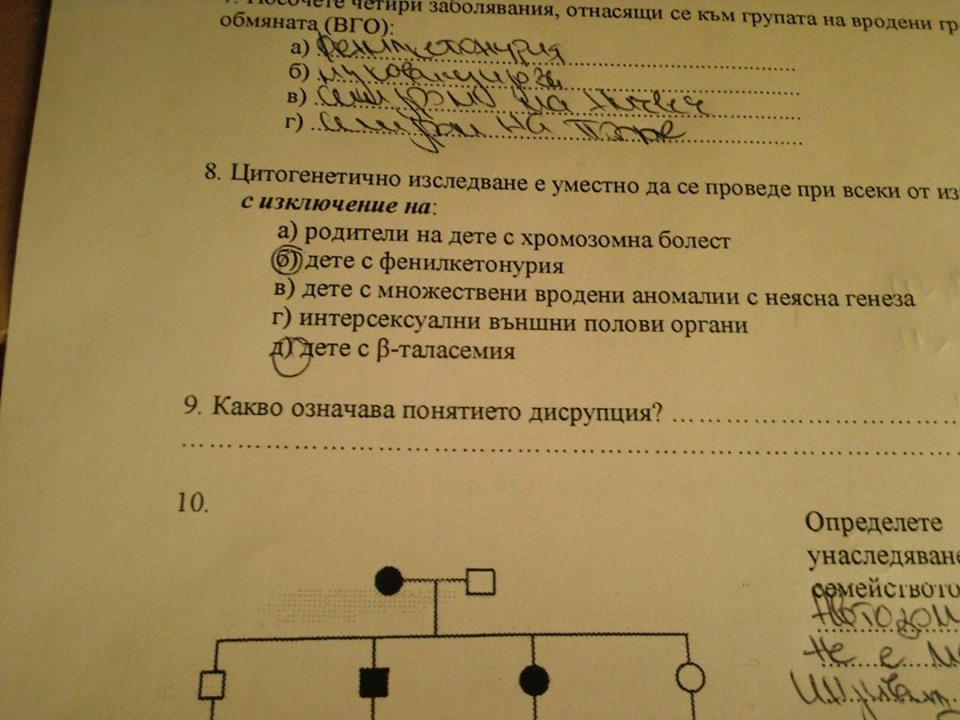 7. Посочете четири заболявания, отнасящи се към групата на вродени гр
обмяната (ВГО):
а) фенилкетонурия
б)
в) на
г) синдром на
8. Цитогенетично изследване е уместно да се проведе при всеки от из
с изключение на:
а) родители на дете с хромозомна болест
б) дете с фенилкетонурия
в) дете с множествени вродени аномалии с неясна генеза
г) интерсексуални външни полови органи
д) дете с β-таласемия
9. Какво означава понятието дисрупция?
10.
Определете
унаследяване
семейството
Автозом
Не е